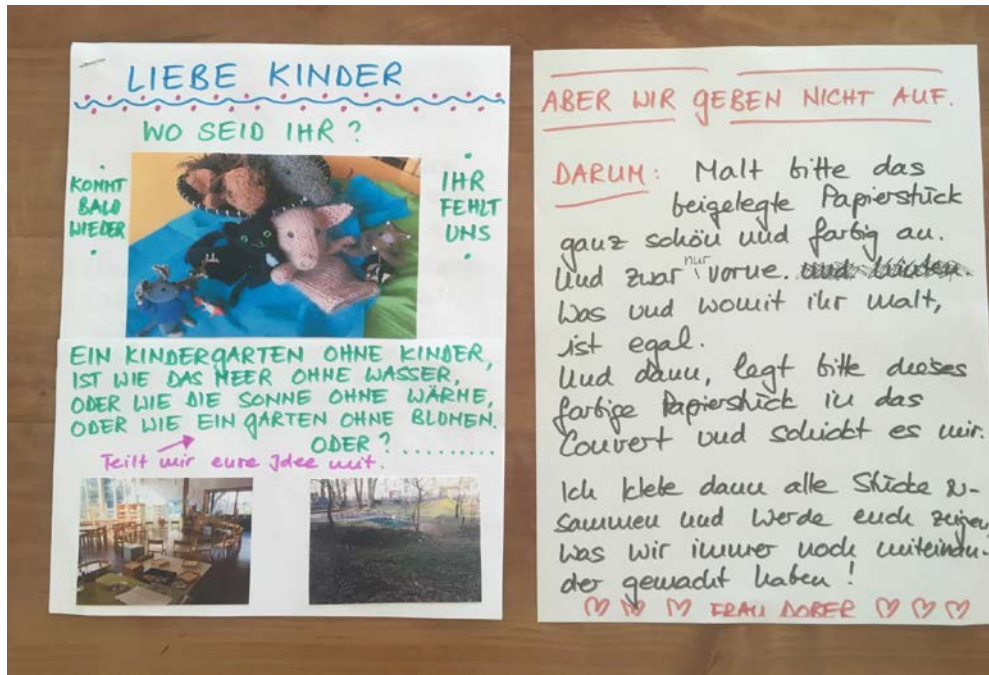 LIEBE KINDER
WO SEID IHR?
KOMMT
BALD
WIEDER
IHR
FEHLT
UNS
EIN KINDERGARTEN OHNE KINDER,
IST WIE DAS MEER OHNE WASSER,
ODER WIE DIE SONNE OHNE WÄRME,
ODER WIE EIN GARTEN OHNE BLUMEN.
ODER?.........
Teilt mir eure Idee mit.
ABER WIR GEBEN NICHT AUF.
DARUM: Malt bitte das
beigelegte Papierstück
ganz schön und farbig an.
Und zwar nur vorne. und hinten
Was und womit ihr malt,
ist egal.
Und dann, legt bitte dieses
farbige Papierstück in das
Couvert und schickt es mir.
Ich klebe dann alle Stücke zu-
sammen und werde euch zeigen
was wir immer noch miteinan-
der gemacht haben!
FRAU DOBER